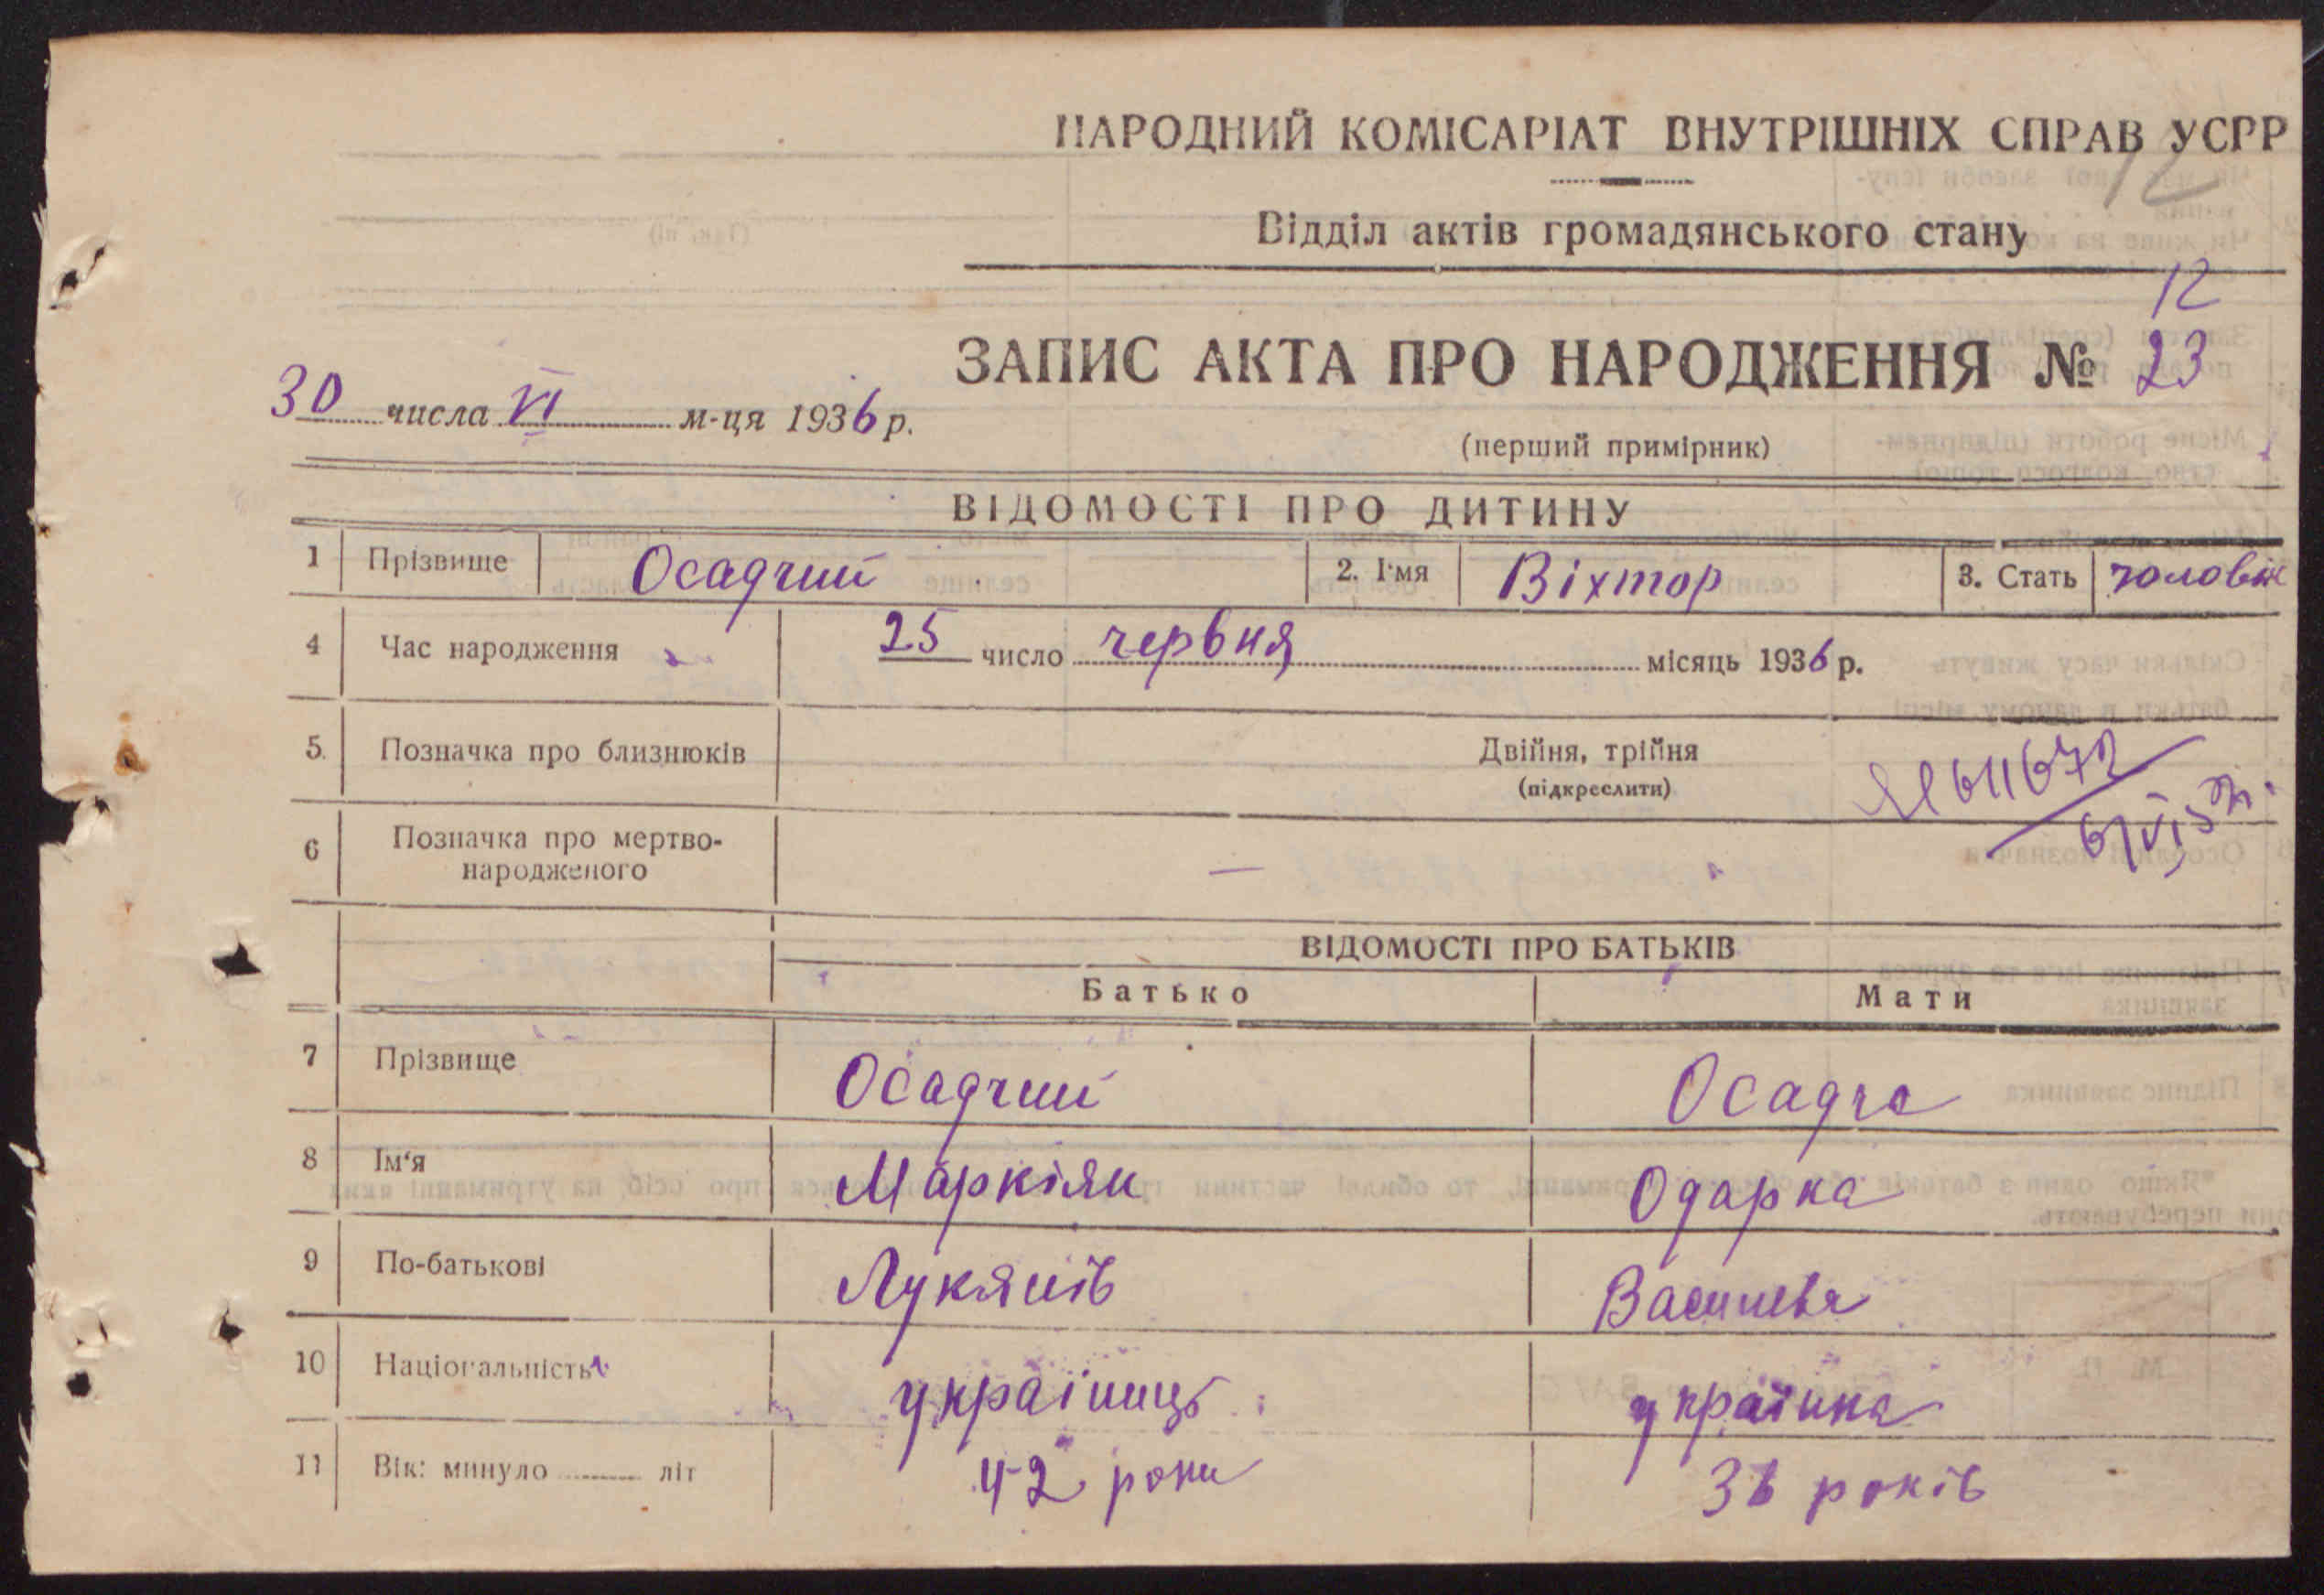 НАРОДНИЙ КОМІСАРІАТ ВНУТРІШНІХ СПРАВ УСРР
12
Відділ актів громадянського стану
12
ЗАПИС АКТА ПРО НАРОДЖЕННЯ № 23
30 числа VI м-ця 1936 р.
(перший примірник)
ВІДОМОСТІ ПРО ДИТИНУ
1 Прізвище Осадчий 2. Ім'я Віхтор 3. Стать чоловік
4 Час народження 25 число червня місяць 1936 р.
5. Позначка про близнюків Двійня, трійня
(підкреслити)
6 Позначка про мертво-
народженого —
ВІДОМОСТІ ПРО БАТЬКІВ
Батько Мати
7 Прізвище Осадчий Осадча
8 Ім'я Маркіян Одарка
9 По-батькові Лукянів Василева
10 Національність українець українка
11 Вік: минуло літ 42 роки 36 років